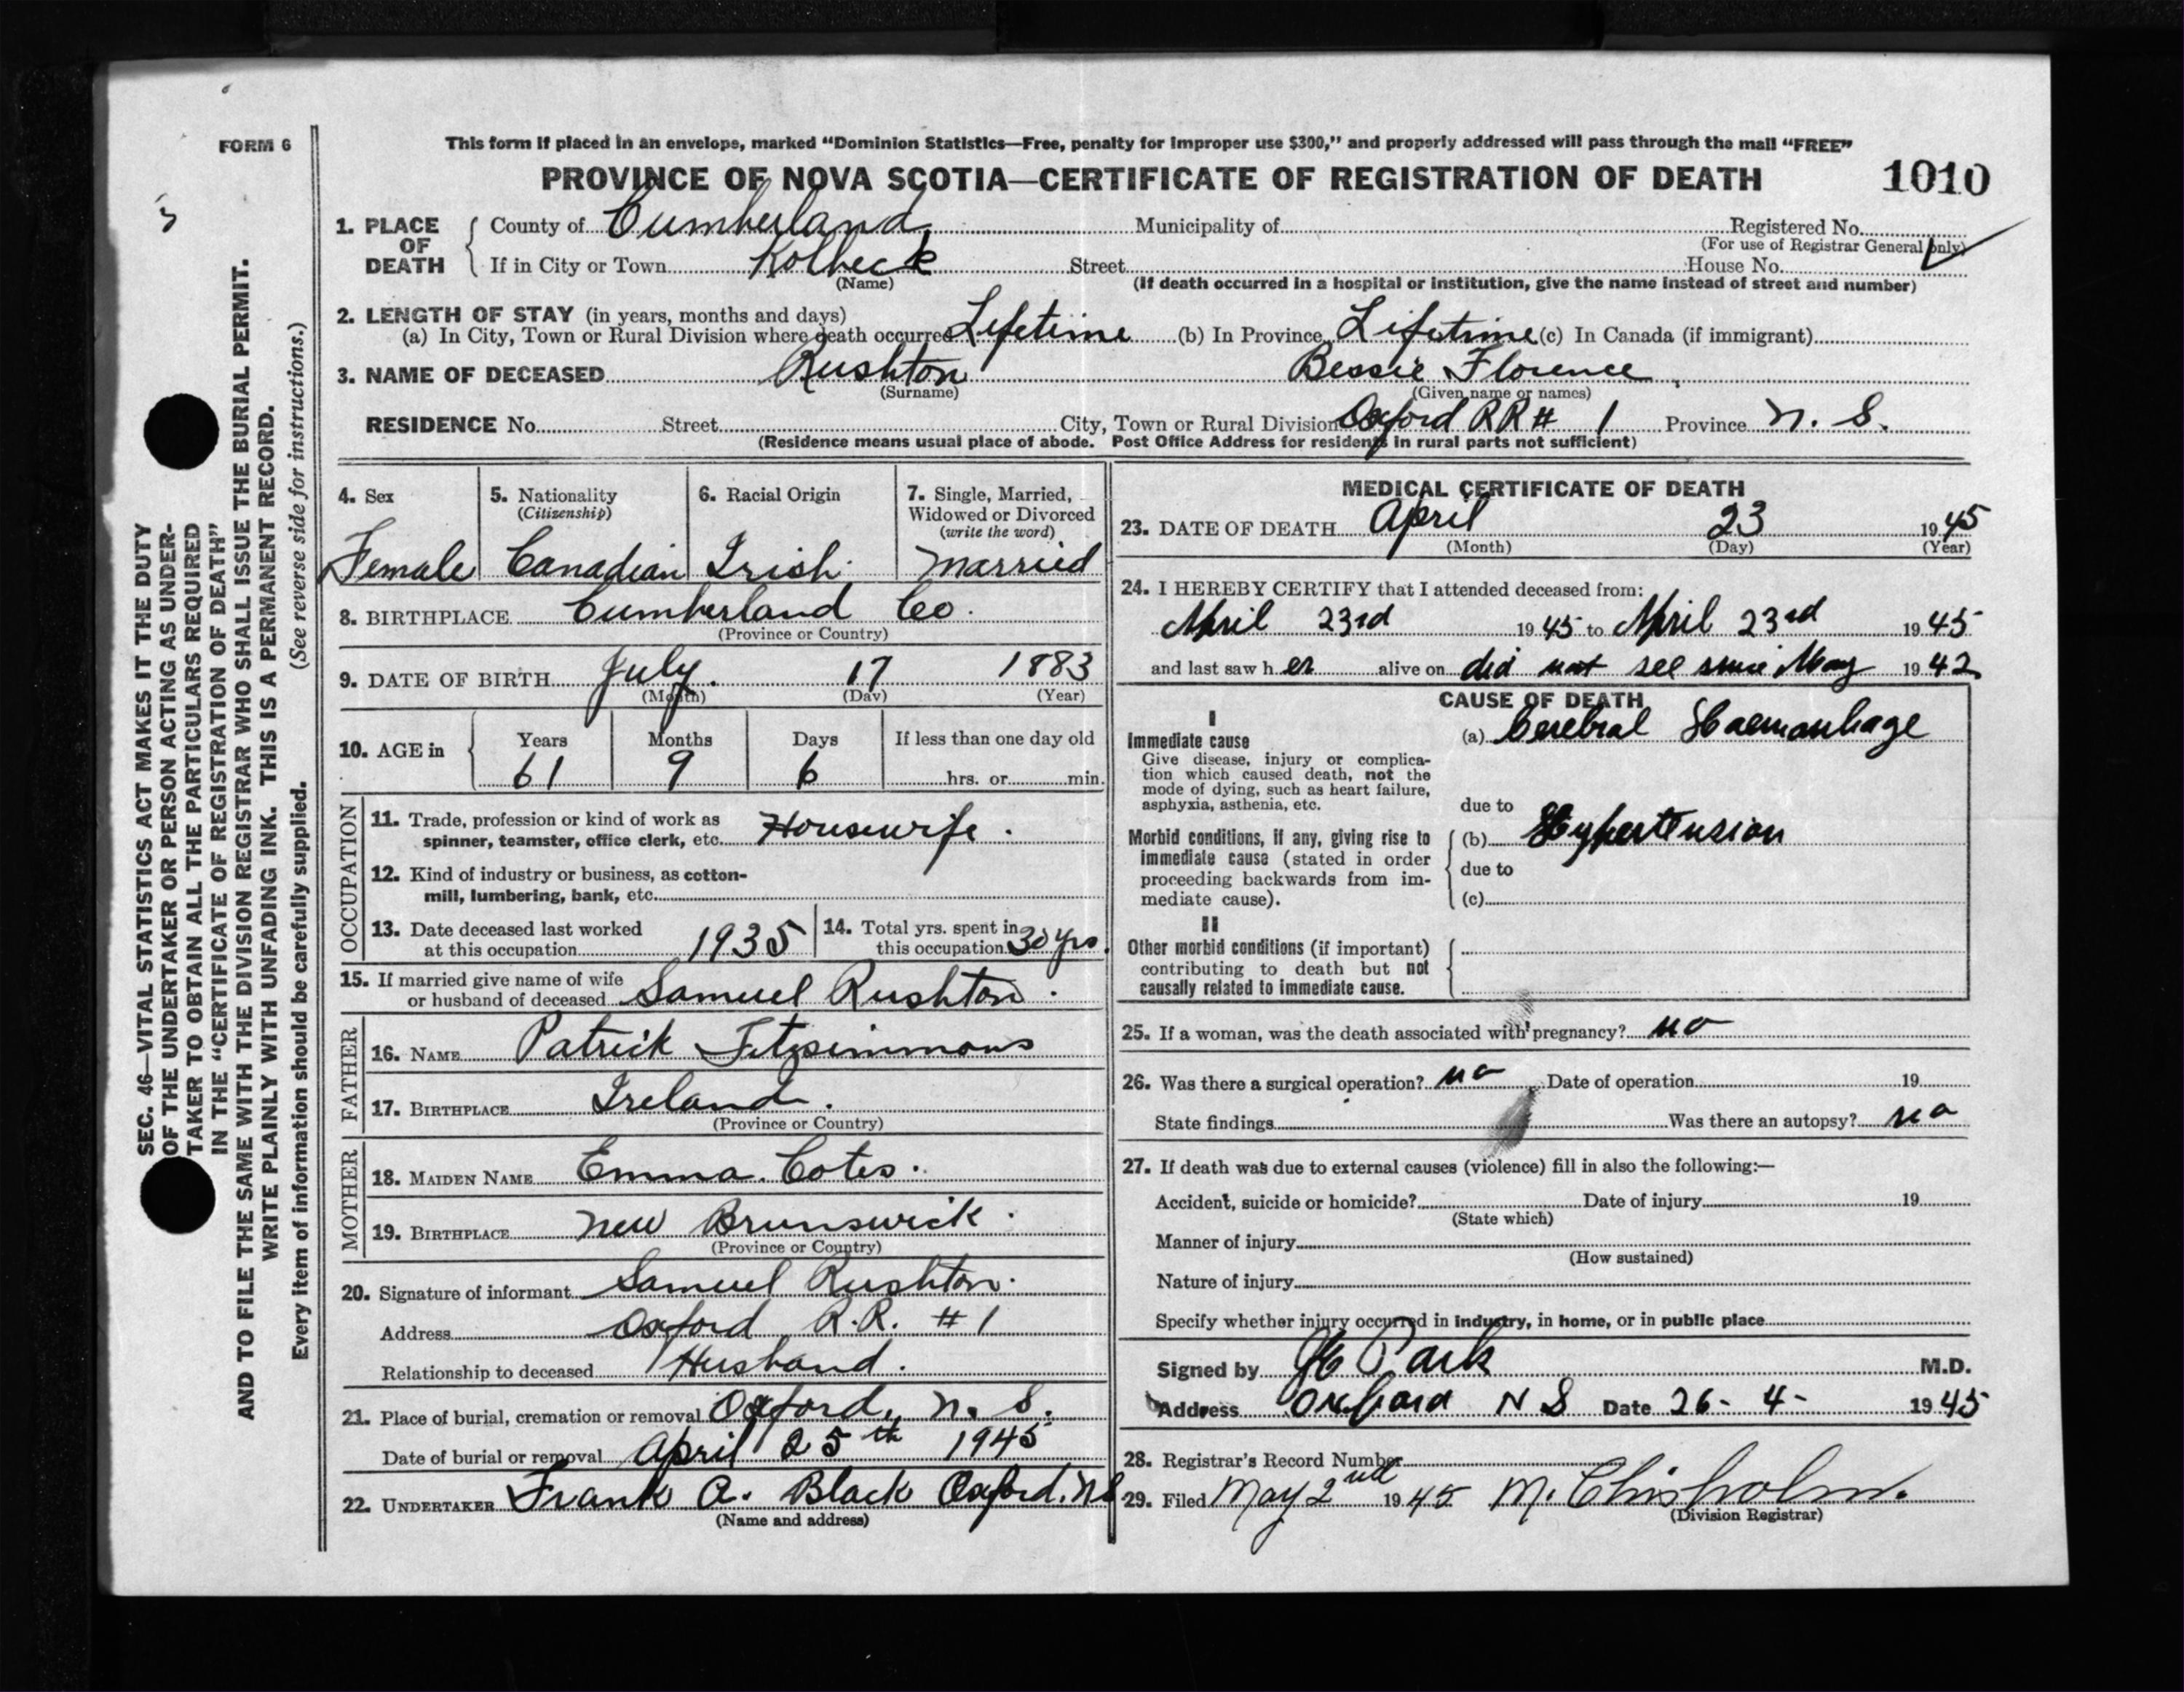 FORM 6
This form if placed in an envelope, marked “Dominion Statistics—Free, penalty for improper use $300,” and properly addressed will pass through the mail “FREE”
PROVINCE OF NOVA SCOTIA—CERTIFICATE OF REGISTRATION OF DEATH
1010
1. PLACE OF DEATH
County of Cumberland Municipality of Registered No.
(For use of Registrar General only)
If in City or Town Kolbeck Street House No.
(Name)
(If death occurred in a hospital or institution, give the name instead of street and number)
2. LENGTH OF STAY (in years, months and days)
(a) In City, Town or Rural Division where death occurred Lifetime (b) In Province Lifetime (c) In Canada (if immigrant)
3. NAME OF DECEASED Rushton Bessie Florence
(Surname) (Given name or names)
RESIDENCE No. Street City, Town or Rural Division Oxford RR # 1 Province N. S.
(Residence means usual place of abode. Post Office Address for residents in rural parts not sufficient)
4. Sex
Female
5. Nationality
(Citizenship)
Canadian
6. Racial Origin
Irish
7. Single, Married,
Widowed or Divorced
(write the word)
Married
8. BIRTHPLACE Cumberland Co.
(Province or Country)
9. DATE OF BIRTH July 17 1883
(Month) (Day) (Year)
10. AGE in
Years Months Days If less than one day old
61 9 6 hrs. or min.
OCCUPATION
11. Trade, profession or kind of work as
spinner, teamster, office clerk, etc. Housewife.
12. Kind of industry or business, as cotton-
mill, lumbering, bank, etc.
13. Date deceased last worked
at this occupation 1935
14. Total yrs. spent in
this occupation 30 yrs.
15. If married give name of wife
or husband of deceased Samuel Rushton.
FATHER
16. NAME Patrick Fitzsimmons
17. BIRTHPLACE Ireland.
(Province or Country)
MOTHER
18. MAIDEN NAME Emma. Cotes.
19. BIRTHPLACE New Brunswick.
(Province or Country)
20. Signature of informant Samuel Rushton.
Address Oxford R.R. # 1
Relationship to deceased Husband.
21. Place of burial, cremation or removal Oxford, N. S.
Date of burial or removal April 25th 1945
22. UNDERTAKER Frank A. Black Oxford. NS
(Name and address)
MEDICAL CERTIFICATE OF DEATH
23. DATE OF DEATH April 23 1945
(Month) (Day) (Year)
24. I HEREBY CERTIFY that I attended deceased from:
April 23rd 1945 to April 23rd 1945
and last saw her alive on did not see since May 1942
CAUSE OF DEATH
I
Immediate cause
Give disease, injury or complica-
tion which caused death, not the
mode of dying, such as heart failure,
asphyxia, asthenia, etc.
(a) Cerebral Haemorrhage
due to
Morbid conditions, if any, giving rise to
immediate cause (stated in order
proceeding backwards from im-
mediate cause).
(b) Hypertension
due to
(c)
II
Other morbid conditions (if important)
contributing to death but not
causally related to immediate cause.
25. If a woman, was the death associated with pregnancy? no
26. Was there a surgical operation? no Date of operation 19
State findings Was there an autopsy? no
27. If death was due to external causes (violence) fill in also the following:—
Accident, suicide or homicide? Date of injury 19
(State which)
Manner of injury
(How sustained)
Nature of injury
Specify whether injury occurred in industry, in home, or in public place
Signed by Park M.D.
Address Oxford N S Date 26- 4- 1945
28. Registrar's Record Number
29. Filed May 2nd 1945 M. Chisholm.
(Division Registrar)
SEC. 46—VITAL STATISTICS ACT MAKES IT THE DUTY
OF THE UNDERTAKER OR PERSON ACTING AS UNDER-
TAKER TO OBTAIN ALL THE PARTICULARS REQUIRED
IN THE “CERTIFICATE OF REGISTRATION OF DEATH”
AND TO FILE THE SAME WITH THE DIVISION REGISTRAR WHO SHALL ISSUE THE BURIAL PERMIT.
WRITE PLAINLY WITH UNFADING INK. THIS IS A PERMANENT RECORD.
Every item of information should be carefully supplied. (See reverse side for instructions.)